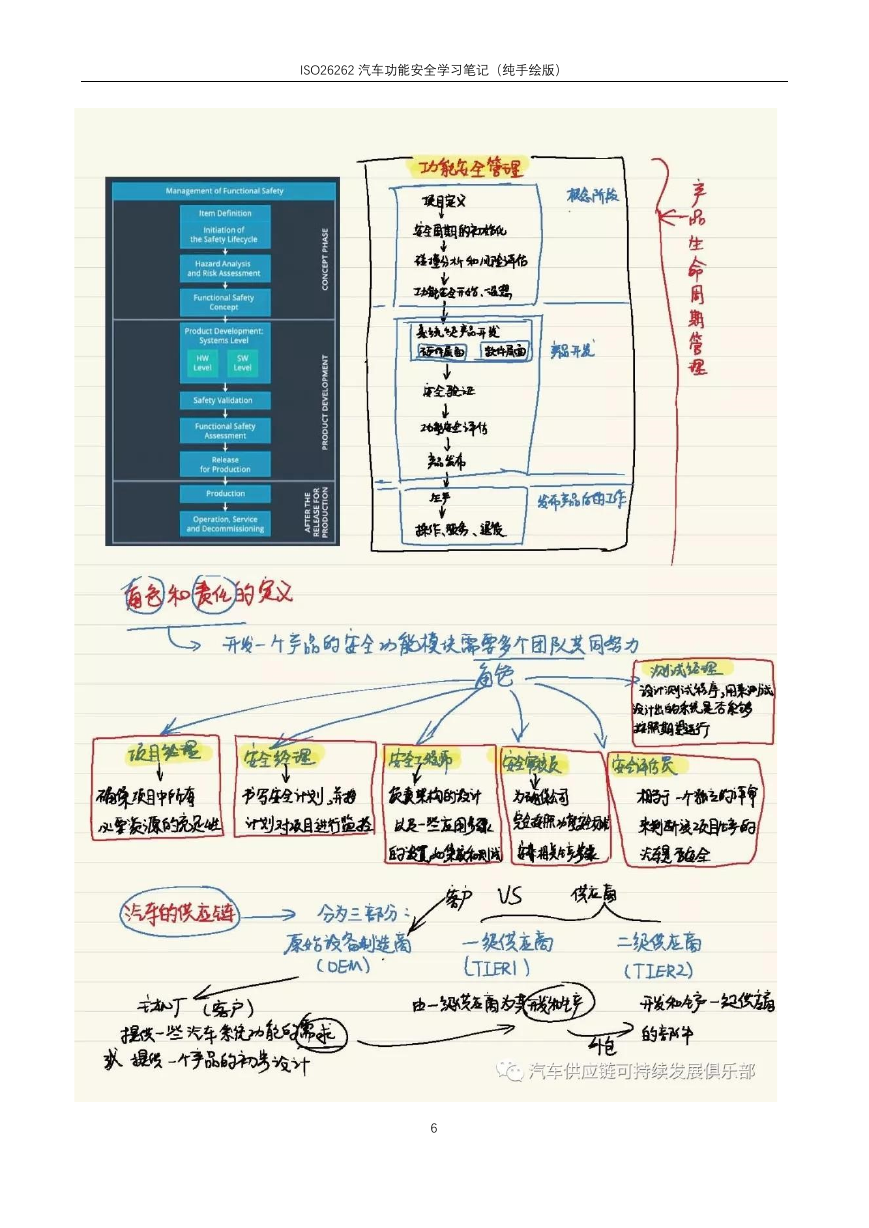 ISO26262 汽车功能安全学习笔记（纯手绘版）
Management of Functional Safety
Item Definition
Initiation of
the Safety Lifecycle
Hazard Analysis
and Risk Assessment
Functional Safety
Concept
CONCEPT PHASE
Product Development:
Systems Level
HW
Level
SW
Level
Safety Validation
Functional Safety
Assessment
Release
for Production
PRODUCT DEVELOPMENT
Production
Operation, Service
and Decommissioning
AFTER THE
RELEASE FOR
PRODUCTION
功能安全管理
项目定义
安全周期的初始化
危害分析和风险评估
功能安全
概念阶段
系统级产品开发
硬件层面
软件层面
安全验证
功能安全评估
产品发布
产品开发
生产
操作、服务、退役
发布产品后的工作
产品生命周期管理
角色和责任的定义
开发一个产品的安全功能模块需要多个团队共同努力
角色
测试经理
设计测试程序,用来测试
设计出的系统是否能够
按照期望运行
项目经理
确保项目中所有
必要资源的充足性
安全经理
书写安全计划,并按
计划对项目进行监控
安全工程师
负责架构的设计
以及一些应用
的设置,如集成和测试
安全审核员
为确保公司
完全按照功能安全
安排相关生产
安全评估员
相当于一个独立的评审
来判断该项目生产的
汽车是否安全
汽车的供应链
分为三部分：
客户 VS 供应商
原始设备制造商
(OEM)
一级供应商
(TIER1)
二级供应商
(TIER2)
主机厂 (客户)
提供一些汽车系统功能的需求
或 提供一个产品的初步设计
由一级供应商为其开发和生产
分包
开发和生产一级供应商
的部件
汽车供应链可持续发展俱乐部
6